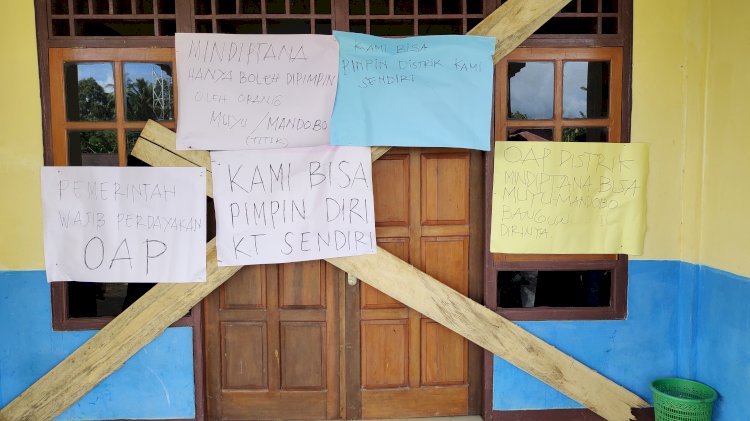 MINDIPTANA
HANYA BOLEH DIPIMPIN
OLEH ORANG
MUYU / MANDOBO
(TITIK)
KAMI BISA
PIMPIN DISTRIK KAMI
SENDIRI
PEMERINTAH
WAJIB PERDAYAKAN
OAP
KAMI BISA
PIMPIN DIRI
KT SENDIRI
OAP DISTRIK
MINDIPTANA BISA
MUYU-MANDOBO
BANGUN
DIRINYA.